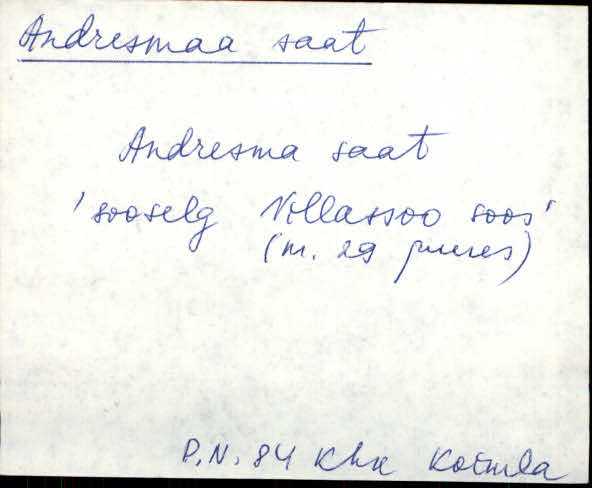 Andresmaa saat
Andresma saat
'sooselg Villassoo soos'
(nr. 29 juures)
P.N. 84 Khk Kotmla